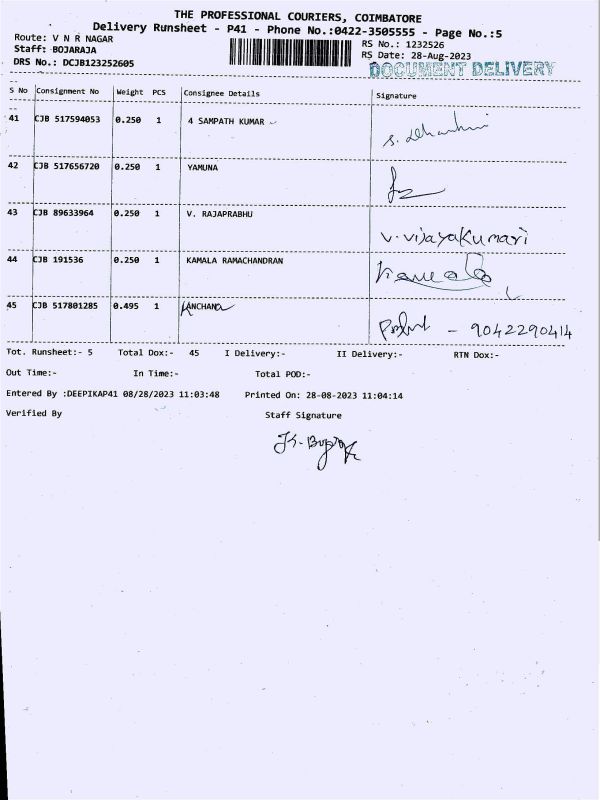 THE PROFESSIONAL COURIERS, COIMBATORE
Delivery Runsheet - P41 - Phone No.:0422-3505555 - Page No.:5
Route: V N R NAGAR
RS No.: 1232526
Staff: BOJARAJA
RS Date: 28-Aug-2023
DRS No.: DCJB123252605
DOCUMENT DELIVERY
S No Consignment No Weight PCS Consignee Details Signature
41 CJB 517594053 0.250 1 4 SAMPATH KUMAR
42 CJB 517656720 0.250 1 YAMUNA
43 CJB 89633964 0.250 1 V. RAJAPRABHU V. Vijayakumari
44 CJB 191536 0.250 1 KAMALA RAMACHANDRAN Kamala
45 CJB 517801285 0.495 1 KANCHANA - 9042290414
Tot. Runsheet:- 5 Total Dox:- 45 I Delivery:- II Delivery:- RTN Dox:-
Out Time:- In Time:- Total POD:-
Entered By :DEEPIKAP41 08/28/2023 11:03:48 Printed On: 28-08-2023 11:04:14
Verified By Staff Signature